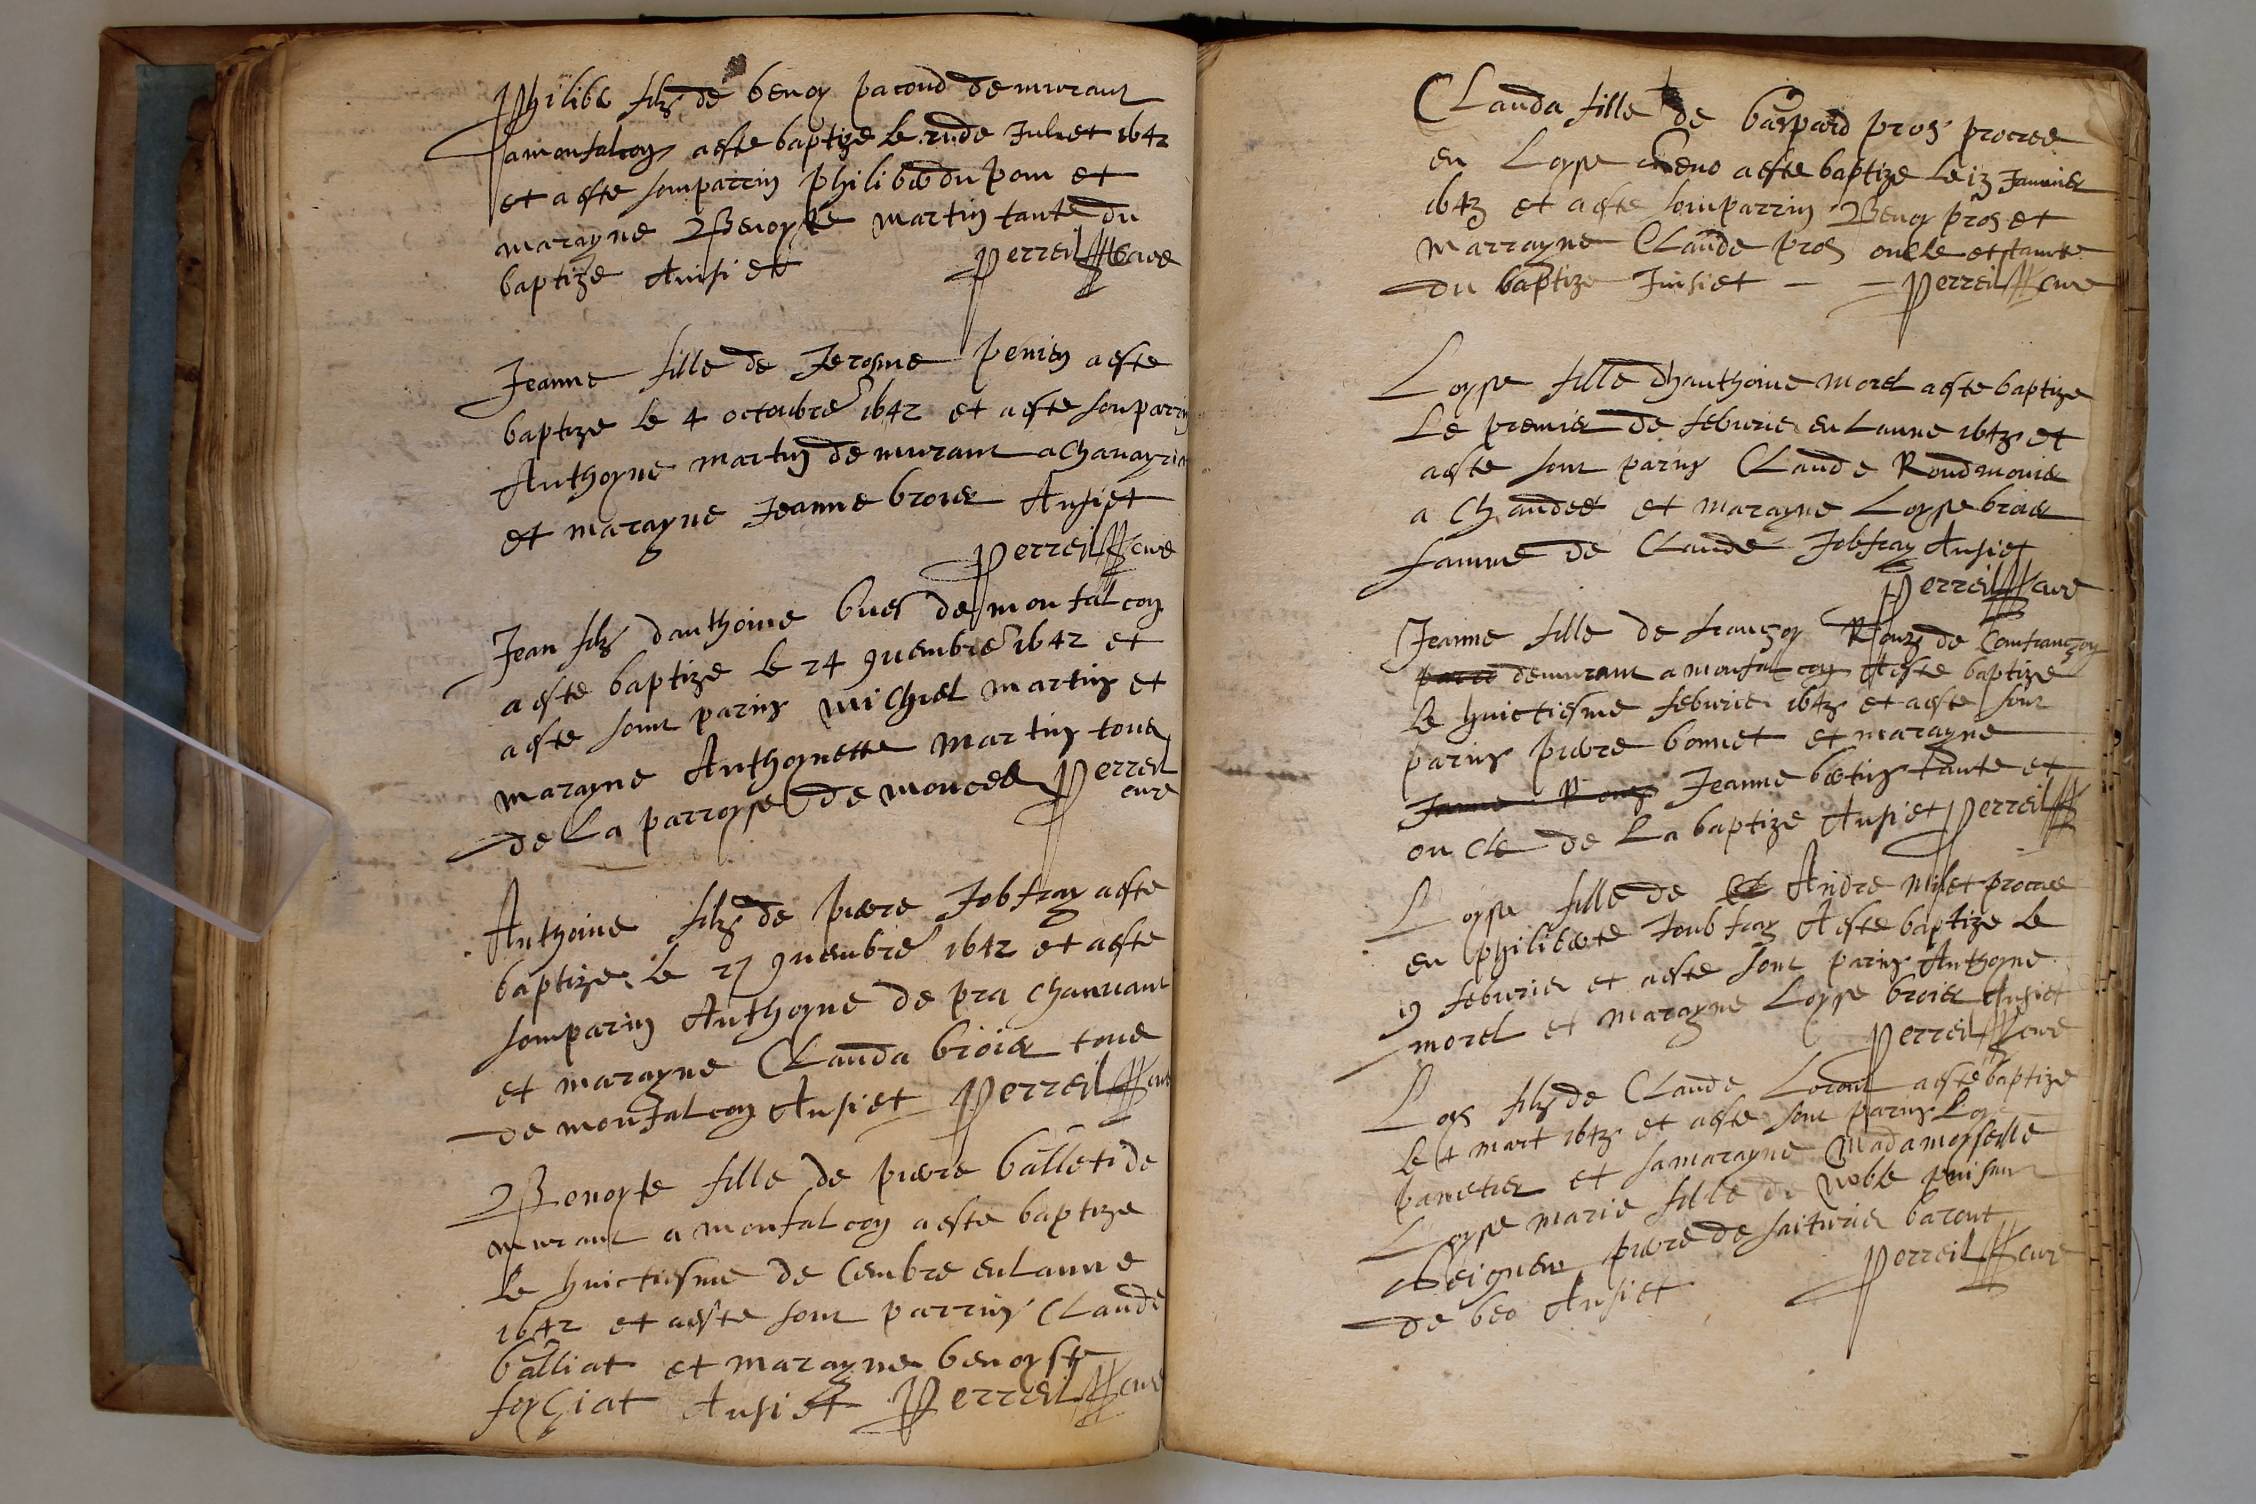 Philib fils de benoy pacoud demurant
a montalcoy a este baptize le de Juliet 1642
et a este son parrin philibe du pom et
marayne Benoyte martin tante du
baptize Ainsi et Perreil cure
Jeanne fille de Jerosme penien a este
baptize le 4 octoubre 1642 et a este son parrin
Anthoyne martin demurant a chanayria
et marayne Jeanne broier Ansi et
Perreil cure
Jean fils danthoine bues de montalcoy
a este baptize le 24 9uembre 1642 et
a este sont parins michiel martins et
marayne Anthoynette martins tous
de la parroysse de moncel Perreil
cure
Anthoine fils de piere Jobfray a este
baptize le 27 9uembre 1642 et a este
son parin Anthoyne de pra chanuant
et marayne Clauda broier tous
de montalcoy Ansi et Perreil cure
Benoyte fille de piere balleti de
murant a montalcoy a este baptize
le huictiesme decembre en lanne
1642 et a este sont parrins Claude
balliat et marayne benoyste
forciat Ansi et Perreil cure
Clauda fille de baspard pros procree
en Loyse a este baptize le 13 Januier
1643 et a este son parrin Benoy pros et
marrayne Claude pros oncle et tante
du baptize Finsi et Perreil cure
Loyse fille dhanthoine morel a este baptize
Le premier de feburie en lanne 1643 et
a este sont parins Claude Roudmouier
a Chandee et marayne Loysse broier
famme de Claude Jobfray Ansi et
Perreil cure
Jeanne fille de françoy Rouz de Confrançoy
demurant a montalcoy A este baptize
le huictiesme feburie 1643 et a este sont
parins piere bonnet et marayne
Janne Rouz Jeanne betins tante et
oncle de La baptize Ansi et Perreil
Loyse fille de Andre milet procree
en philibete Joubfray A este baptize le
19 feburier et a este sont parins Anthoyne
morel et marayne Loyse broier Ansi et
Perreil cure
Loys fils de Claude Loront a este baptize
le 4 mart 1643 et a este sont parins Loys
banetier et sa marayne Madamoyselle
Loyse marie fille de noble puisant
seigneur piere de saiturier baront
de beo Ansi et Perreil cure